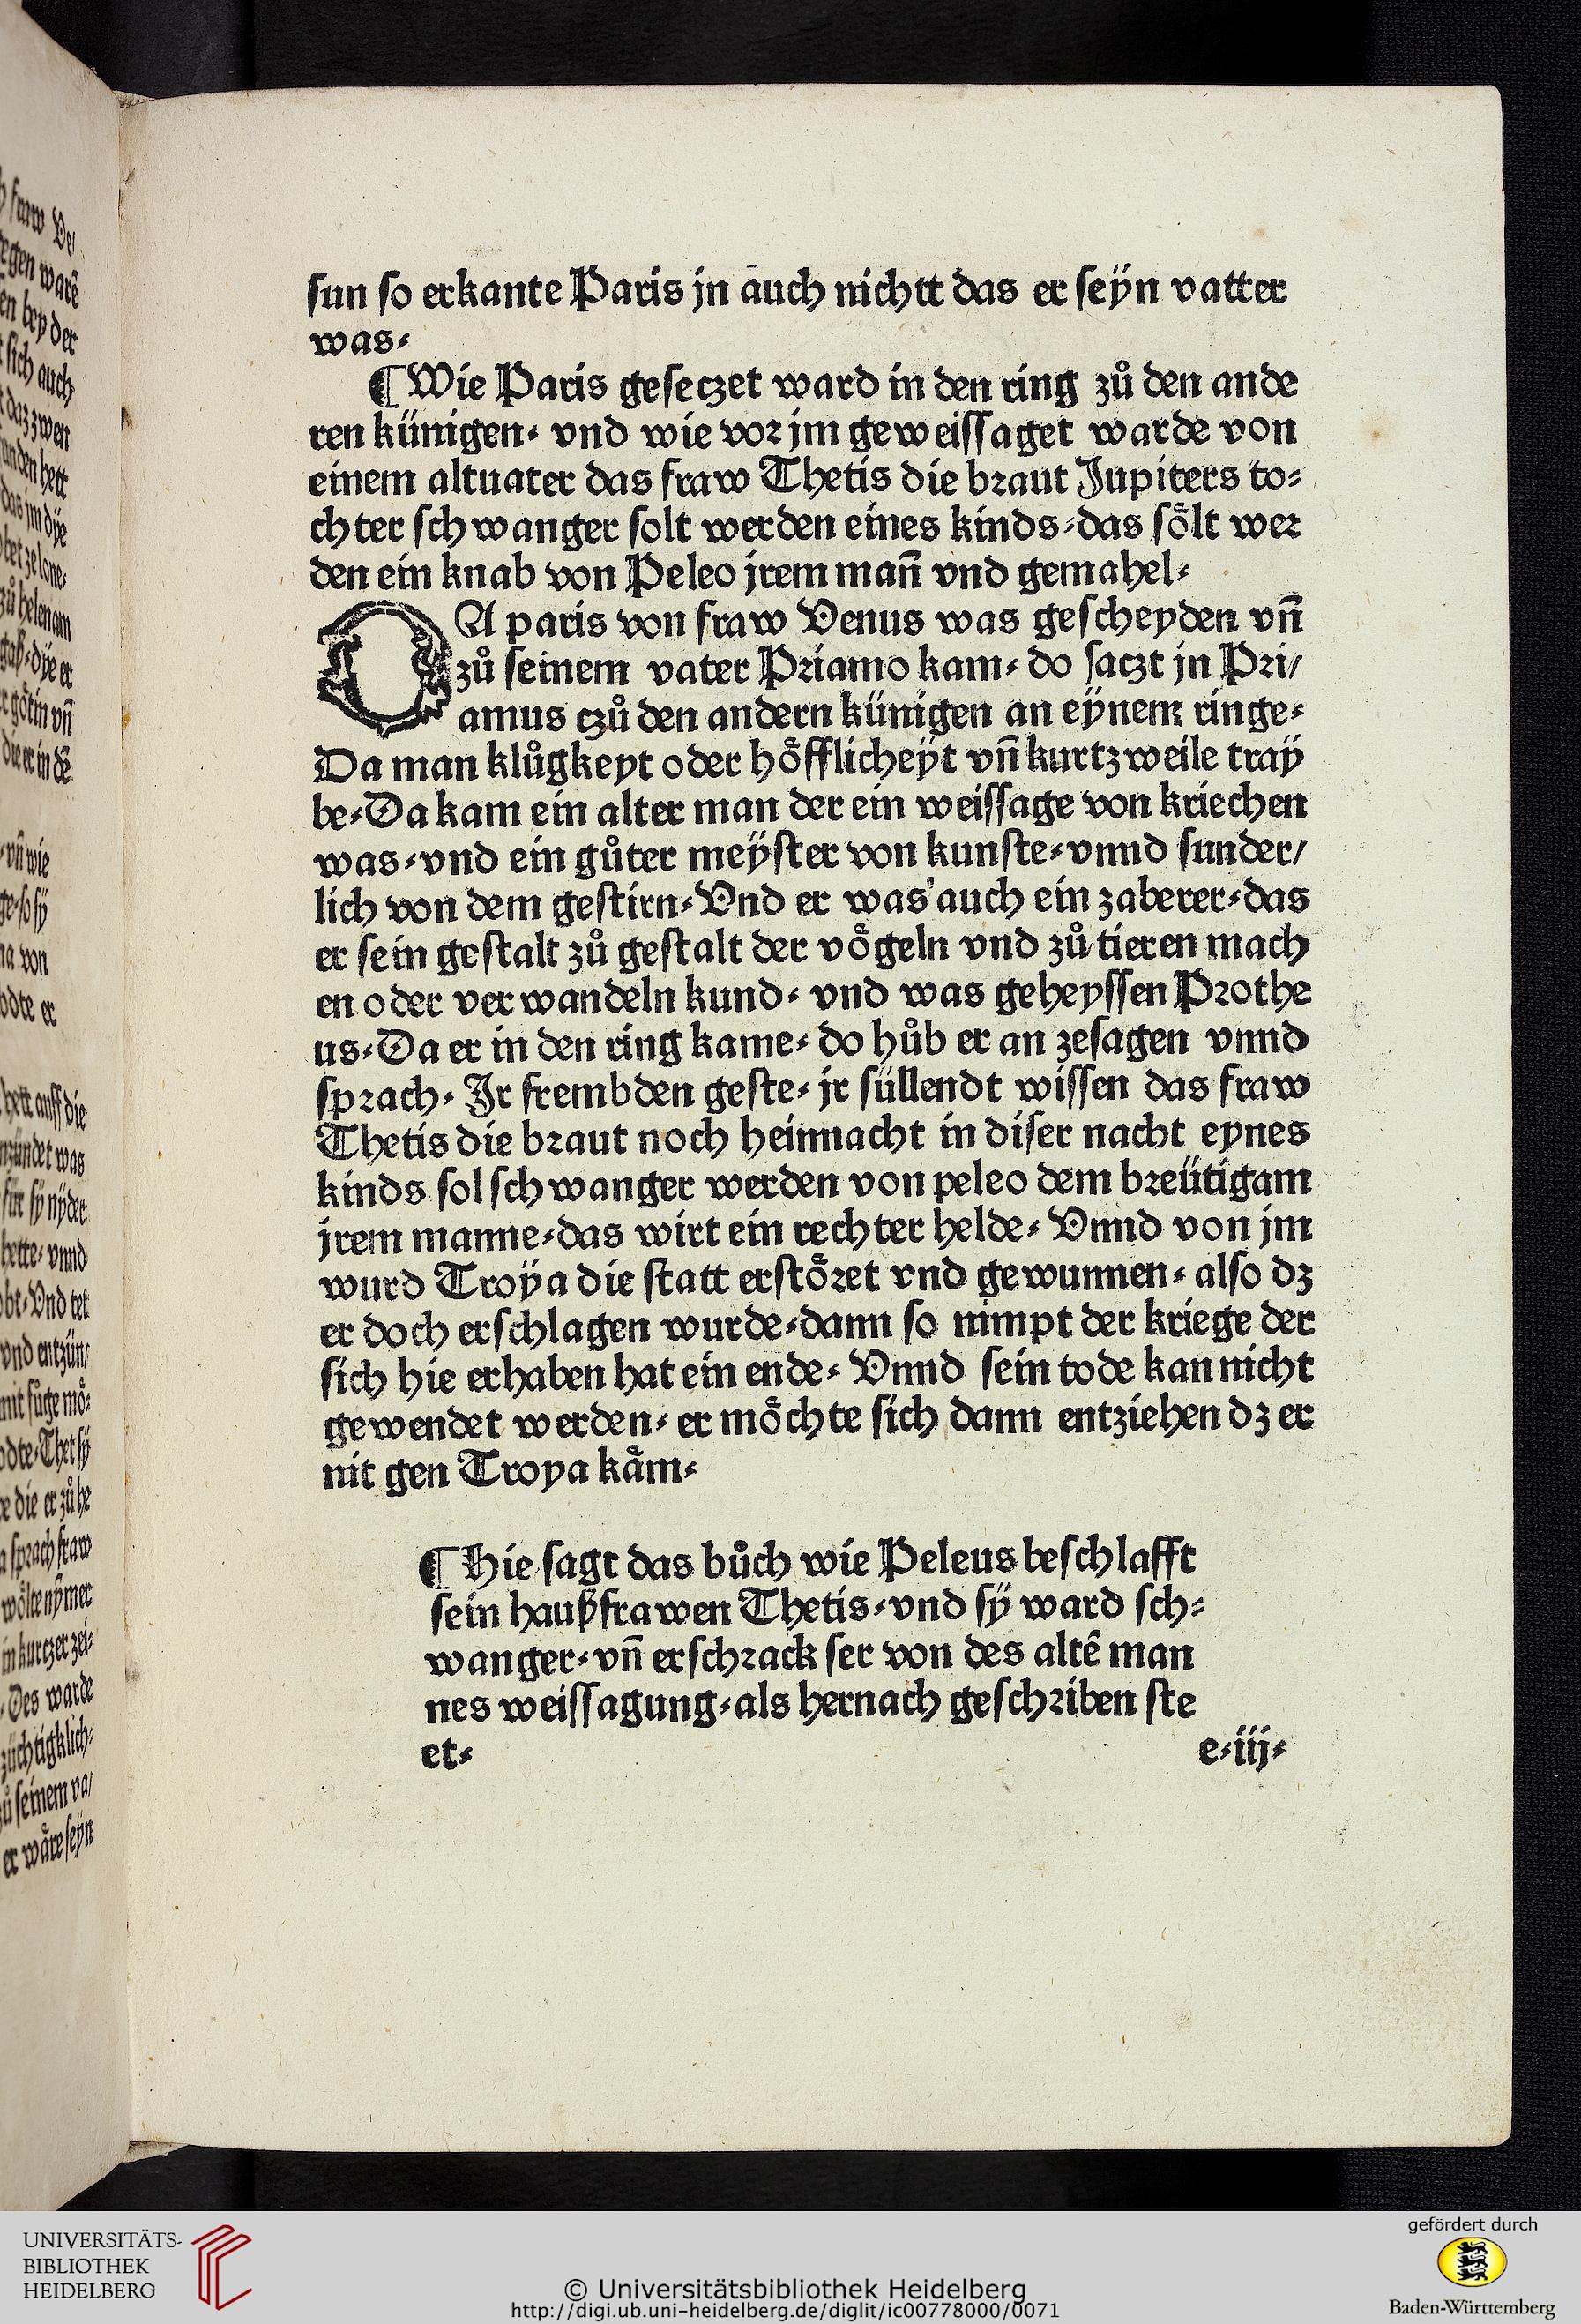 sun so erkante Paris jn auch nichtt das er seÿn vatter
was⸗
¶ Wie Paris gesetzet ward in den ring zů den ande
ren künigen⸗ vnd wie vor jm geweissaget warde von
einem altuater das fraw Thetis die braut Jupiters to⸗
chter schwanger solt werden eines kinds⸗das soͤlt wer
den ein knab von Peleo jrem mañ vnd gemahel⸗
DA paris von fraw Venus was gescheyden vñ
zů seinem vater Priamo kam⸗ do saczt jn Pri/
amus czů den andern künigen an eÿnem ringe⸗
Da man klůgkeyt oder hoͤfflicheÿt vñ kurtzweile traÿ
be⸗Da kam ein alter man der ein weissage von kriechen
was⸗vnd ein gůter meÿster von kunste⸗vnnd sunder/
lich von dem gestirn⸗Vnd er was auch ein zaberer⸗das
er sein gestalt zů gestalt der voͤgeln vnd zů tieren mach
en oder verwandeln kund⸗ vnd was geheyssen Prothe
us⸗Da er in den ring kame⸗ do hůb er an zesagen vnnd
sprach⸗ Jr frembden geste⸗ jr süllendt wissen das fraw
Thetis die braut noch heinnacht in diser nacht eynes
kinds sol schwanger werden von peleo dem breütigam
jrem manne⸗das wirt ein rechter helde⸗ Vnnd von jm
wurd Troÿa die statt erstoͤret vnd gewunnen⸗ also dz
er doch erschlagen wurde⸗dann so nimpt der kriege der
sich hie erhaben hat ein ende⸗ Vnnd sein tode kan nicht
gewendet werden⸗ er moͤchte sich dann entziehen dz er
nit gen Troya kaͤm⸗
¶ Hie sagt das bůch wie Peleus beschlafft
sein haußfrawen Thetis⸗vnd sÿ ward sch⸗
wanger⸗vñ erschrack ser von des altẽ man
nes weissagung⸗als hernach geschriben ste
et⸗ e⸗iij⸗
UNIVERSITÄTS-
BIBLIOTHEK
HEIDELBERG
© Universitätsbibliothek Heidelberg
http://digi.ub.uni-heidelberg.de/diglit/ic00778000/0071
gefördert durch
Baden-Württemberg